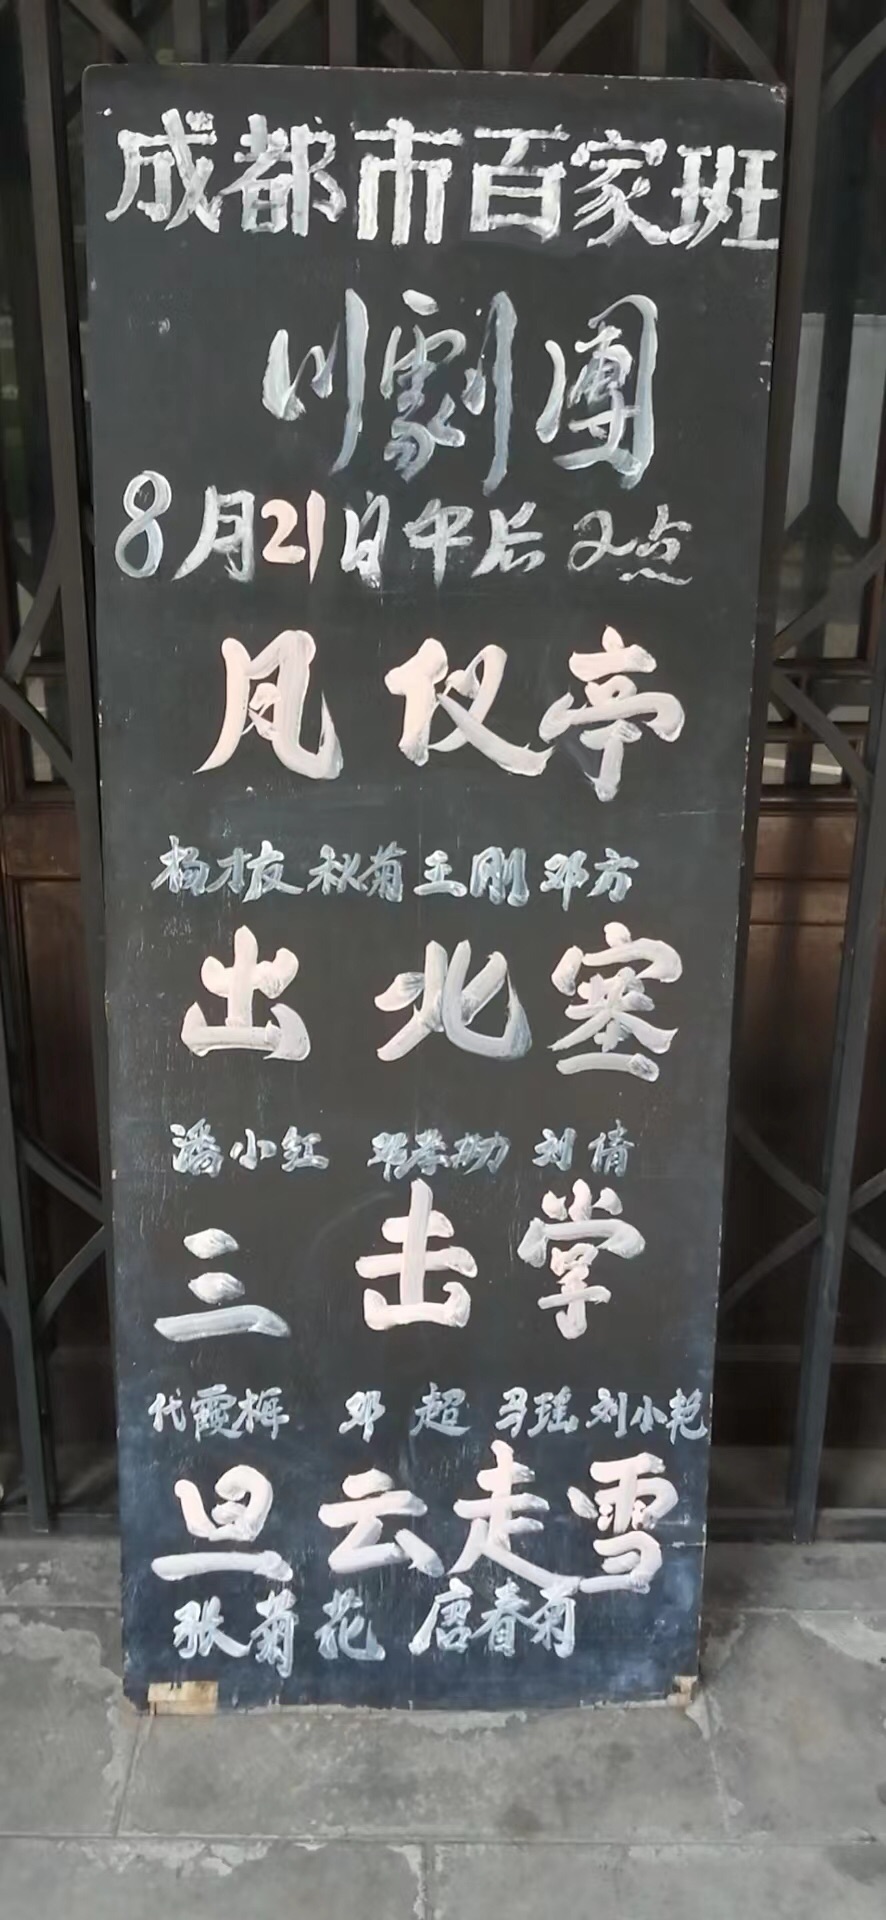 成都市百家班
川劇團
8月21日午后2点
凤仪亭
杨才友 秋菊 王刚 邓方
出北塞
潘小红 刘倩
三击掌
代霞梅 邓超 马瑶 刘小艳
旦云走雪
张菊花 唐春菊